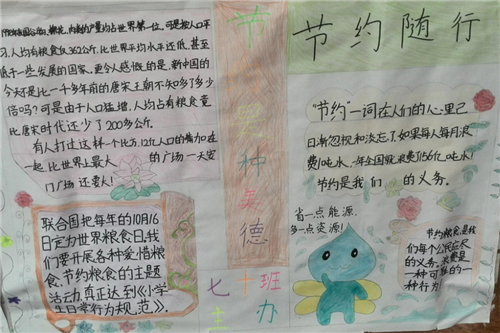 棉花、肉制的产量均占世界第一位,可是按人口平
习,人均有粮食仅362公斤,比世界平均水平还低,甚至
低于一些发展的国家、更令人感慨的是,新中国的
今天还是比一千多年前的唐宋王朝不知多了多少
倍吗?可是由于人口猛增,人均占有粮食竟
比唐宋时代还少了200多公斤。
有人打过这样一个比方,12亿人口的
一起,比世界上最大的广场一天安
门广场还要大!
联合国把每年的10月16
日定为世界粮食日,我
们要开展各种爱惜粮
食、节约粮食的主题
活动,真正达到《小学
生日常行为规范》。
节
种
美
德
七十班
主办
节约随行
“节约”一词在人们的心里已
日渐忽视和淡忘了,如果每人每月浪
费1吨水,一年全国就浪费156亿吨水!
节约是我们的义务。
省一点能源,
多一点资源!
节约粮食是我
们每个公民应尽
的义务,浪费是
一种可耻的一
种行为